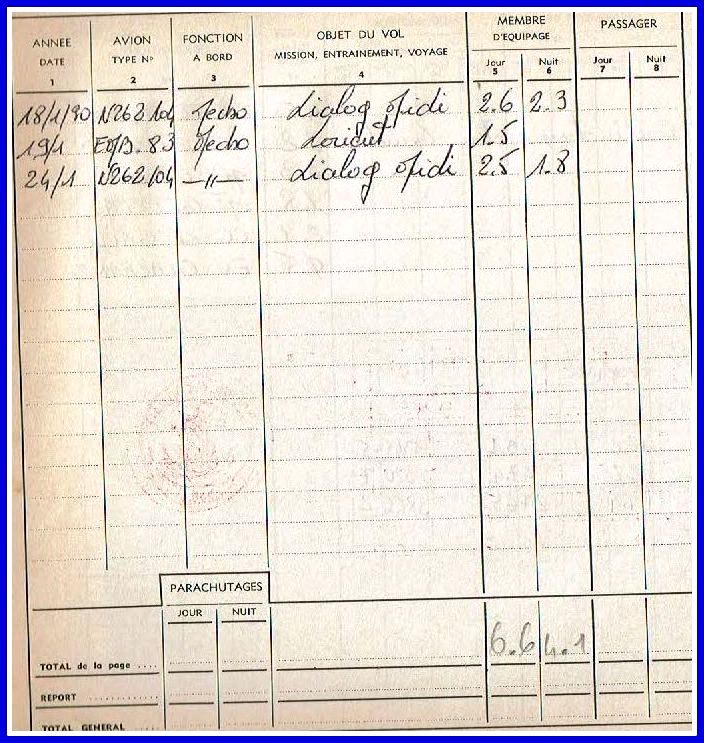 ANNEE AVION FONCTION OBJET DU VOL MEMBRE D'EQUIPAGE PASSAGER
DATE TYPE Nº A BORD MISSION, ENTRAINEMENT, VOYAGE Jour Nuit Jour Nuit
1 2 3 4 5 6 7 8
18/1/90 N262.104 Mecbo Dialog Midi 2.6 2.3
19/1 83 Mecbo Lorient 1.5
24/1 N262.104 —〃— Dialog Midi 2.5 1.8
PARACHUTAGES
JOUR NUIT
6.6 4.1
TOTAL de la page ....
REPORT ............
TOTAL GENERAL